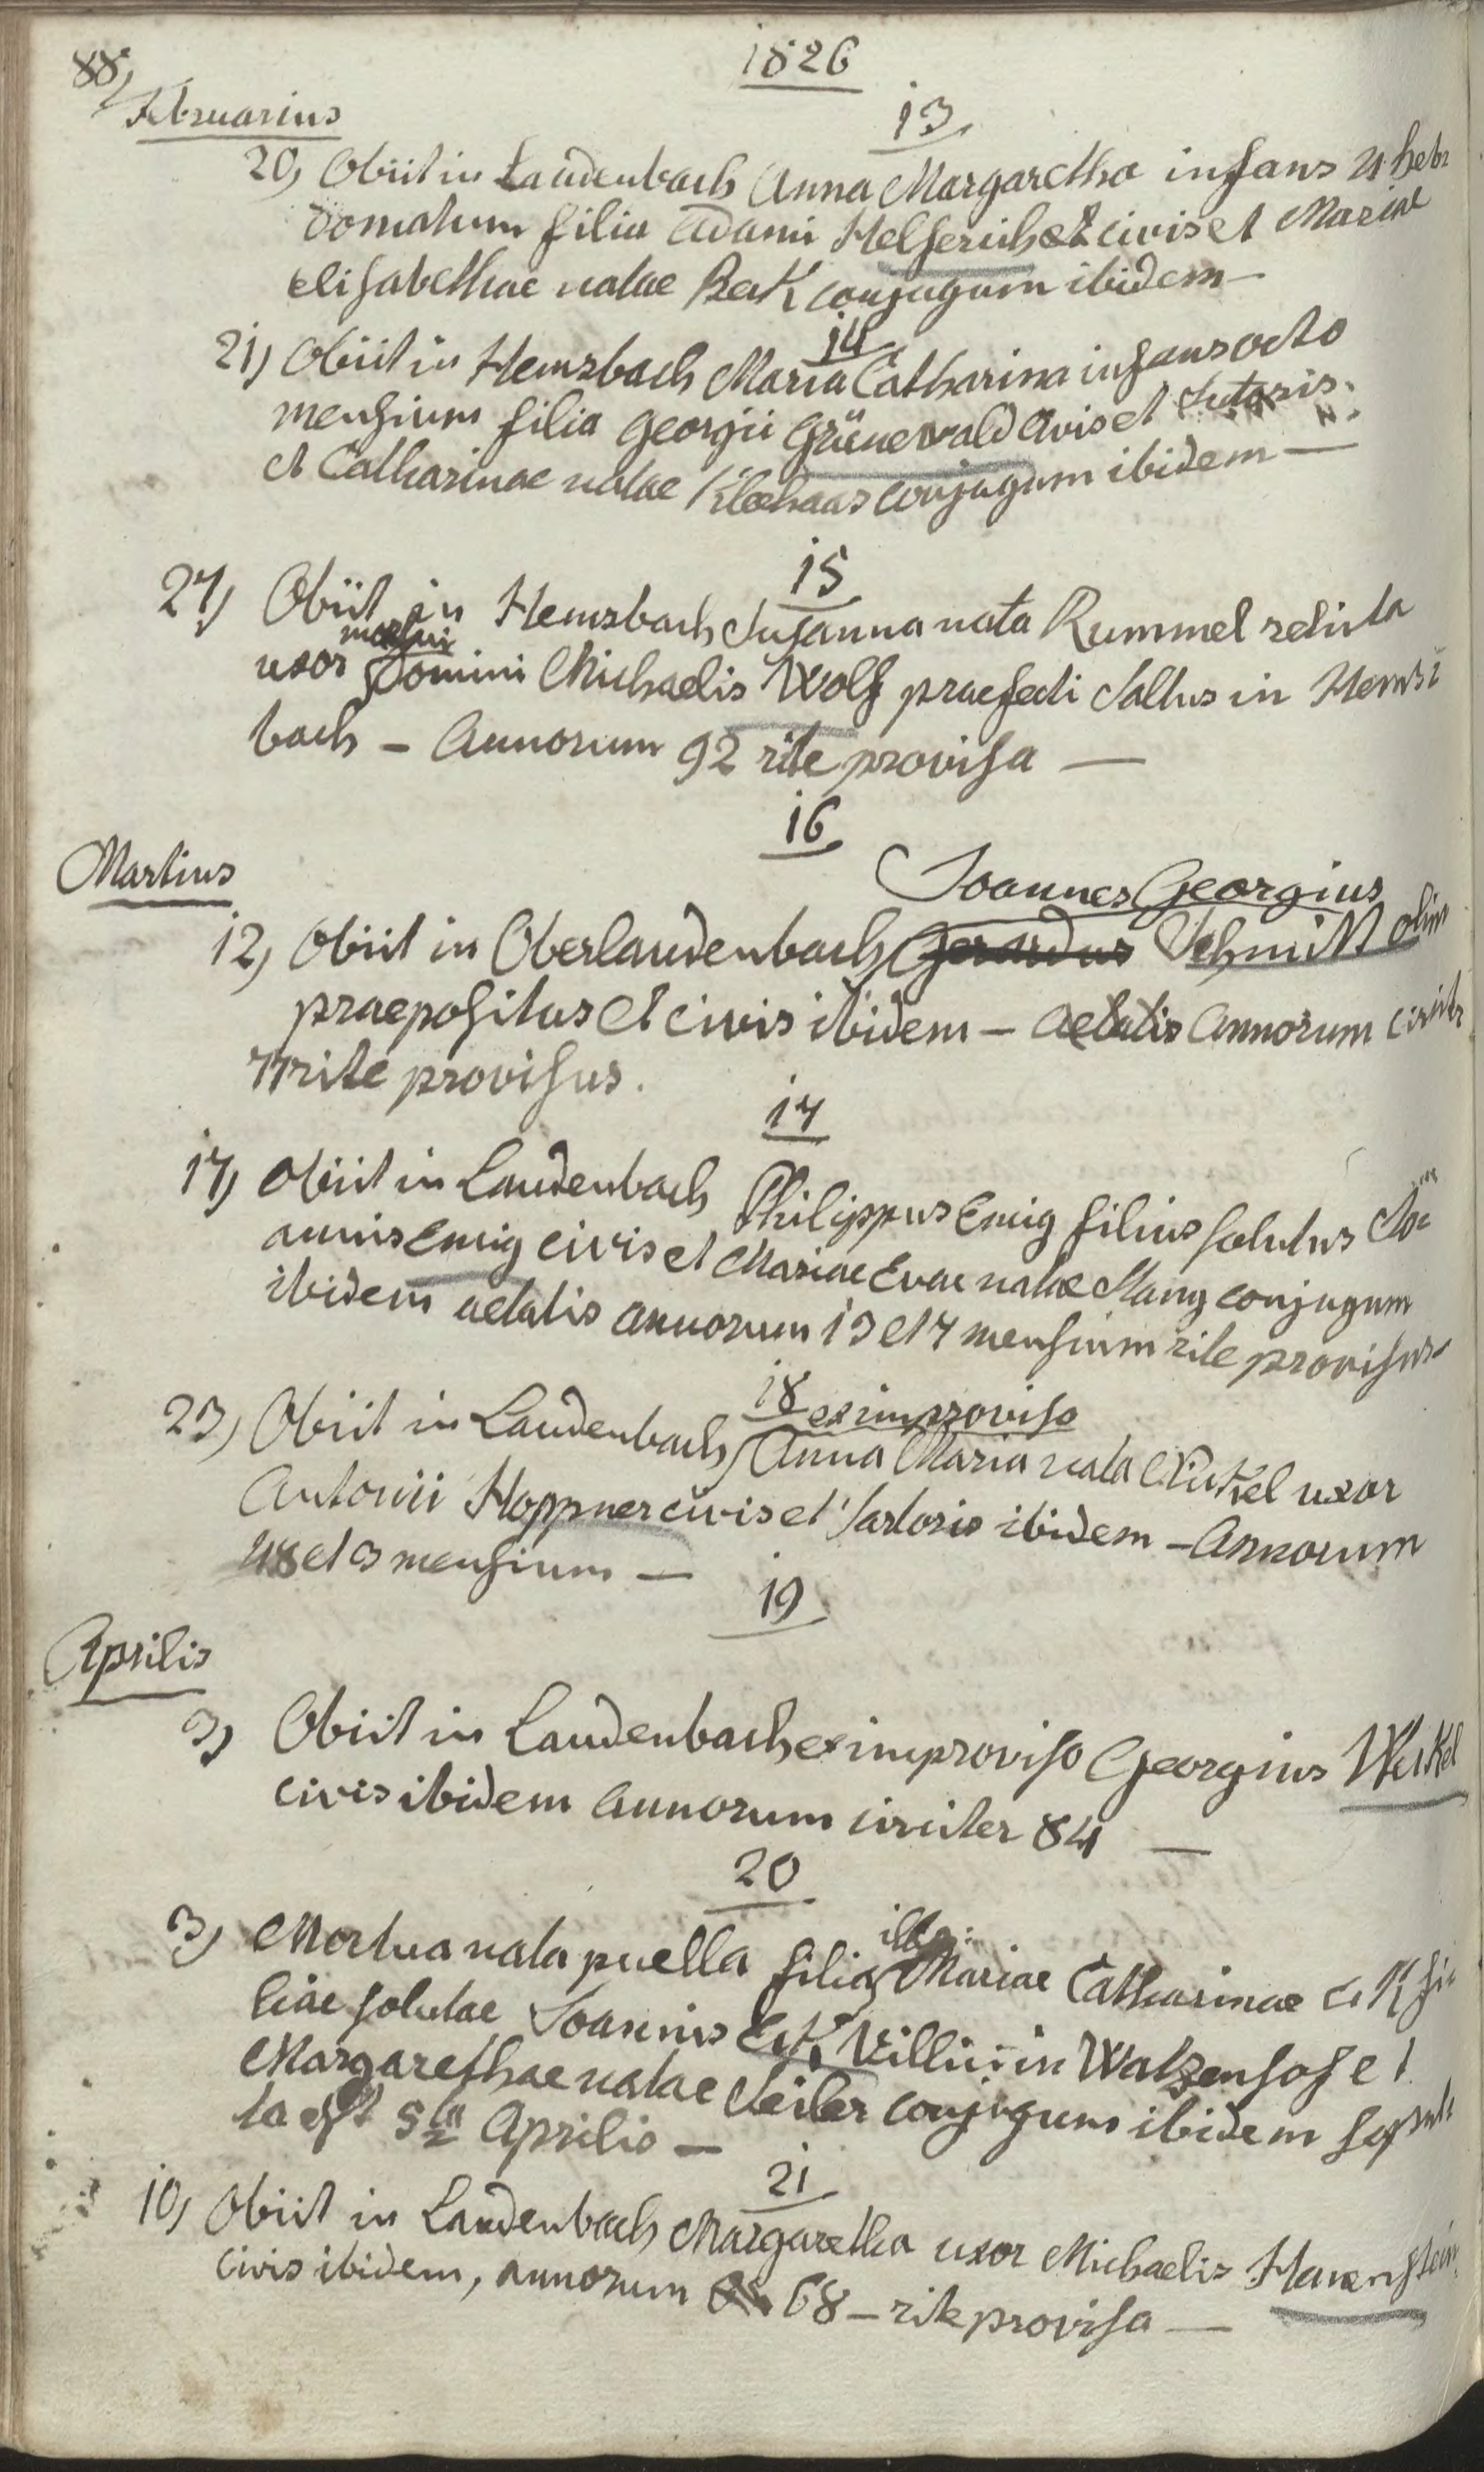 88,
1826
Februarius
13
20, Obiit in Laudenbach Anna Margaretha infans 4 heb
domatum filia Adami Helferich civis et Mariae
Elisabethae natae Bek conjugum ibidem —
14
21, Obiit in Hemsbach Maria Catharina infans octo
mensium filia Georgii Grünewald civis et Sutoris
et Catharinae natae Kloehaas conjugum ibidem —
15
27, Obiit in Hemsbach Susanna nata Rummel relicta
mortui
uxor Domini Michaelis Wolf praefecti Saltus in Hems
bach – Annorum 92 rite provisa —
16
Martius
Joannes Georgius
12, Obiit in Oberlaudenbach Gerardus Schmitt olim
praepositus et civis ibidem – aetatis Annorum circiter
77 rite provisus.
17
17, Obiit in Laudenbach Philippus Emig filius solutus Jo
annis Emig civis et Mariae Evae natae Stang conjugum
ibidem aetatis annorum 13 et 7 mensium rite provisus
18
ex improviso
23, Obiit in Laudenbach Anna Maria nata Nikel uxor
Antonii Hoppner civis et Sartoris ibidem – Annorum
48 et 3 mensium —
19
Aprilis
3, Obiit in Laudenbach ex improviso Georgius Weikel
civis ibidem annorum circiter 84 —
20
3, Mortua nata puella filia Mariae Catharinae Ek fi
liae solutae Joannis Ek Villici in Watzenhof et
Margarethae natae Seiler conjugum ibidem sepul
ta est 5ta Aprilis —
21
10, Obiit in Laudenbach Margaretha uxor Michaelis Hauenstein
civis ibidem, annorum 68 – rite provisa —